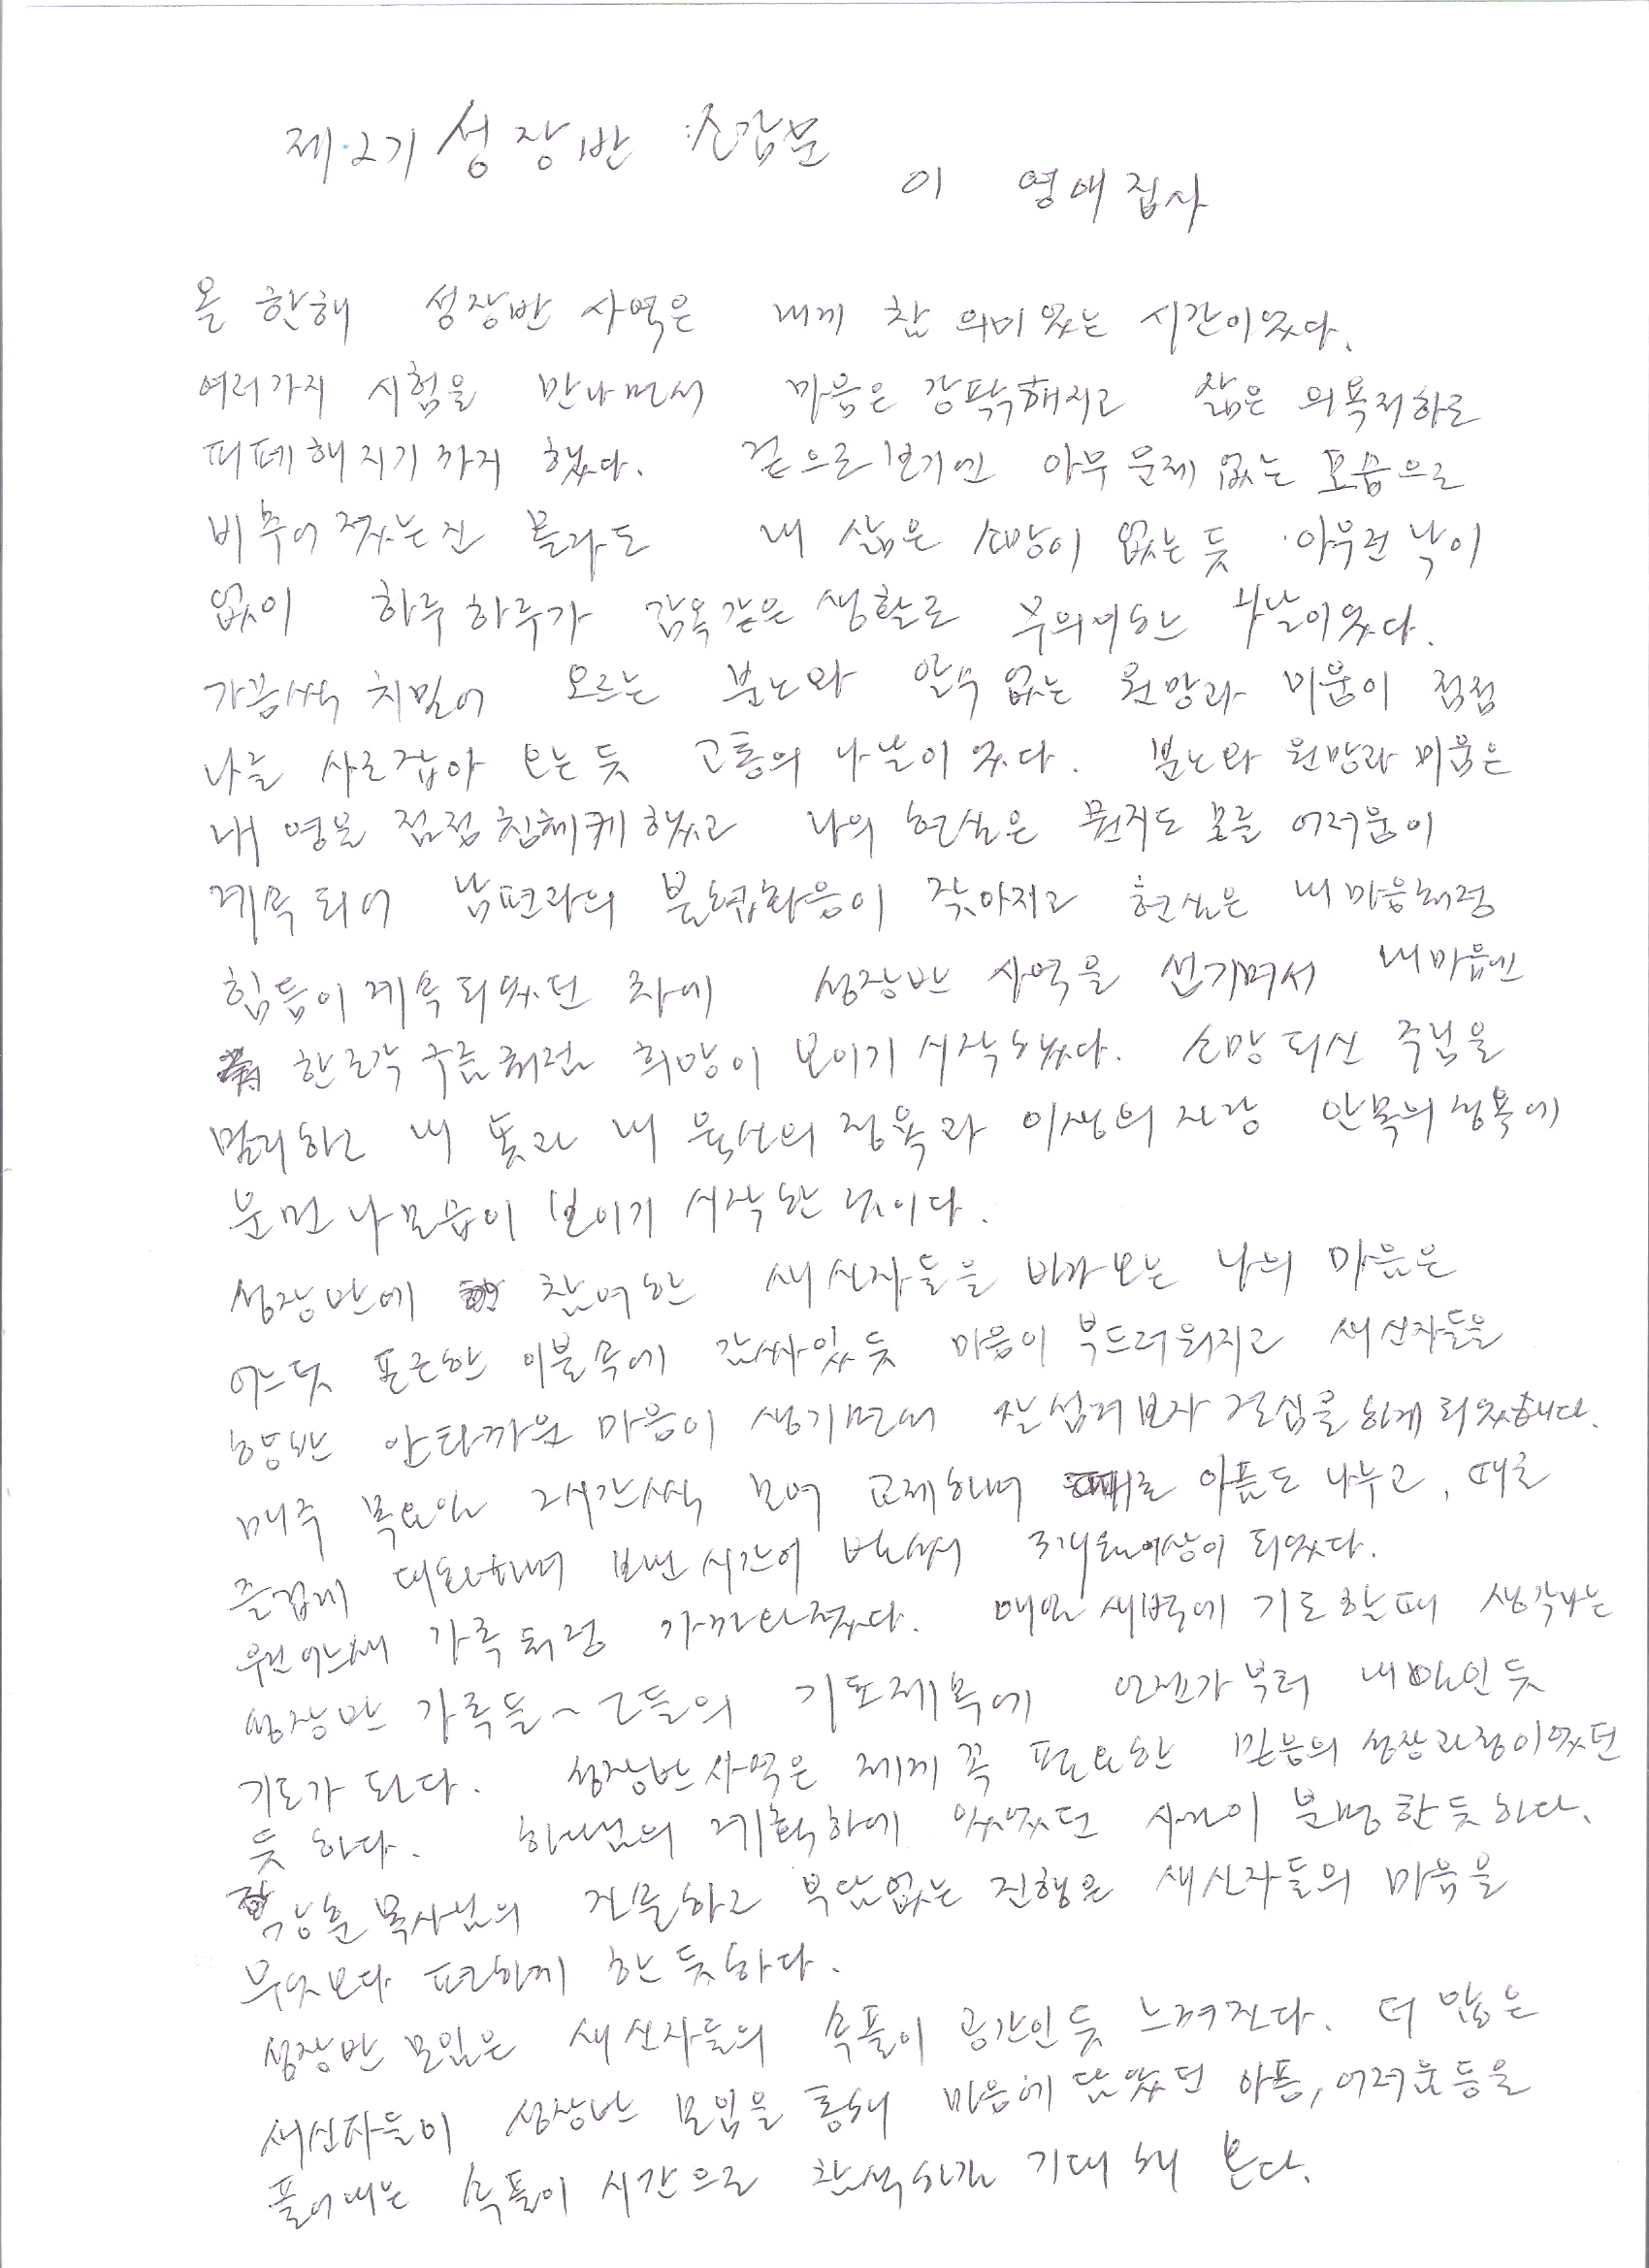 제2기 성장반 소감문
이 영애 집사
올 한해 성장반 사역은 내게 참 의미있는 시간이었다.
여러가지 시험을 만나면서 마음은 강퍅해지고 삶은 의욕저하로
피폐해지기까지 했다. 겉으로 보기엔 아무 문제 없는 모습으로
비추어졌는진 몰라도 내 삶은 소망이 없는 듯 아무런 낙이
없이 하루하루가 감옥같은 생활로 무의미한 나날이었다.
가끔씩 치밀어 오르는 분노와 알수 없는 원망과 미움이 점점
나를 사로잡아 오는듯 고통의 나날이 었다. 분노와 원망과 미움은
내 영을 점점 침체케 했고 나의 현실은 뭔지도 모를 어려움이
계속 되어 남편과의 불협화음이 잦아지고 현실은 내 마음처럼
힘듬이 계속 되었던 차에 성장반 사역을 섬기며서 내마음엔
한조각 구름처럼 희망이 보이기 시작했다. 소망되신 주님을
멀리하고 내 뜻과 내 육신의 정욕과 이생의 자랑 안목의 정욕에
눈먼 나 모습이 보이기 시작한 것이다.
성장반에 참여한 새신자들을 바라보는 나의 마음은
어느덧 포근한 이불속에 감싸있듯 마음이 부드러워지고 새신자들을
향한 안타까운 마음이 생기면서 잘 섬겨보자 결심을 하게 되었습니다.
매주 목요일 2시간씩 모여 교제하며 때로 아픔도 나누고, 때로
즐겁게 대화하며 보낸 시간이 벌써 3개월이상이 되었다.
어느새 가족처럼 가까와졌다. 매일 새벽에 기도할때 생각나는
성장반 가족들~ 그들의 기도제목에 언젠가부터 내 맘인 듯
기도가 된다. 성장반 사역은 제게 꼭 필요한 믿음의 성장과정이었던
듯 하다. 하나님의 계획하에 있었던 사건이 분명한 듯하다.
강훈 목사님의 진솔하고 부담없는 진행은 새신자들의 마음을
무엇보다 편하게 한 듯하다.
성장반 모임은 새신자들의 속풀이 공간인 듯 느껴진다. 더 많은
새신자들이 성장반 모임을 통해 마음에 담았던 아픔, 어려움 등을
풀어내는 속풀이 시간으로 참석하길 기대 해 본다.